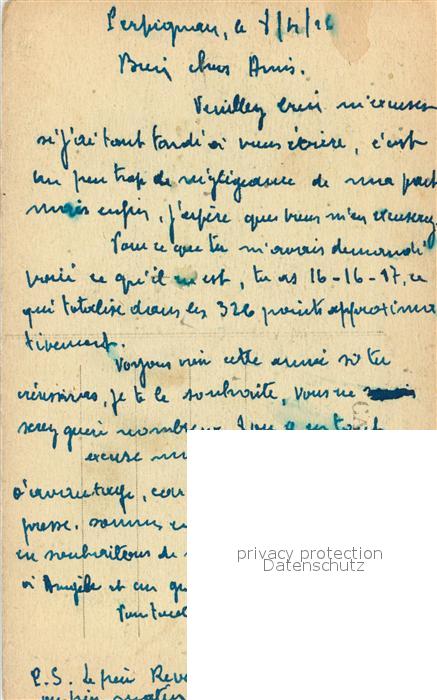 Perpignan, le 8/4/26
Bien chers Amis.
Veuillez bien m'excuser
si j'ai tant tardé à vous écrire, c'est
un peu trop de négligeance de ma part
mais enfin, j'espère que vous m'en excuserez
Pour ce que tu m'avais demandé
voici ce qu'il en est, tu as 16-16-17, ce
qui totalise dans les 326 points approxima
tivement.
Voyons voir cette année si tu
réussiras, je te le souhaite, vous ne
serez guère nombreux
excuse
d'avantage, car
presse. sommes
en souhaitons de
à Angèle et
privacy protection
Datenschutz
P.S. Le père